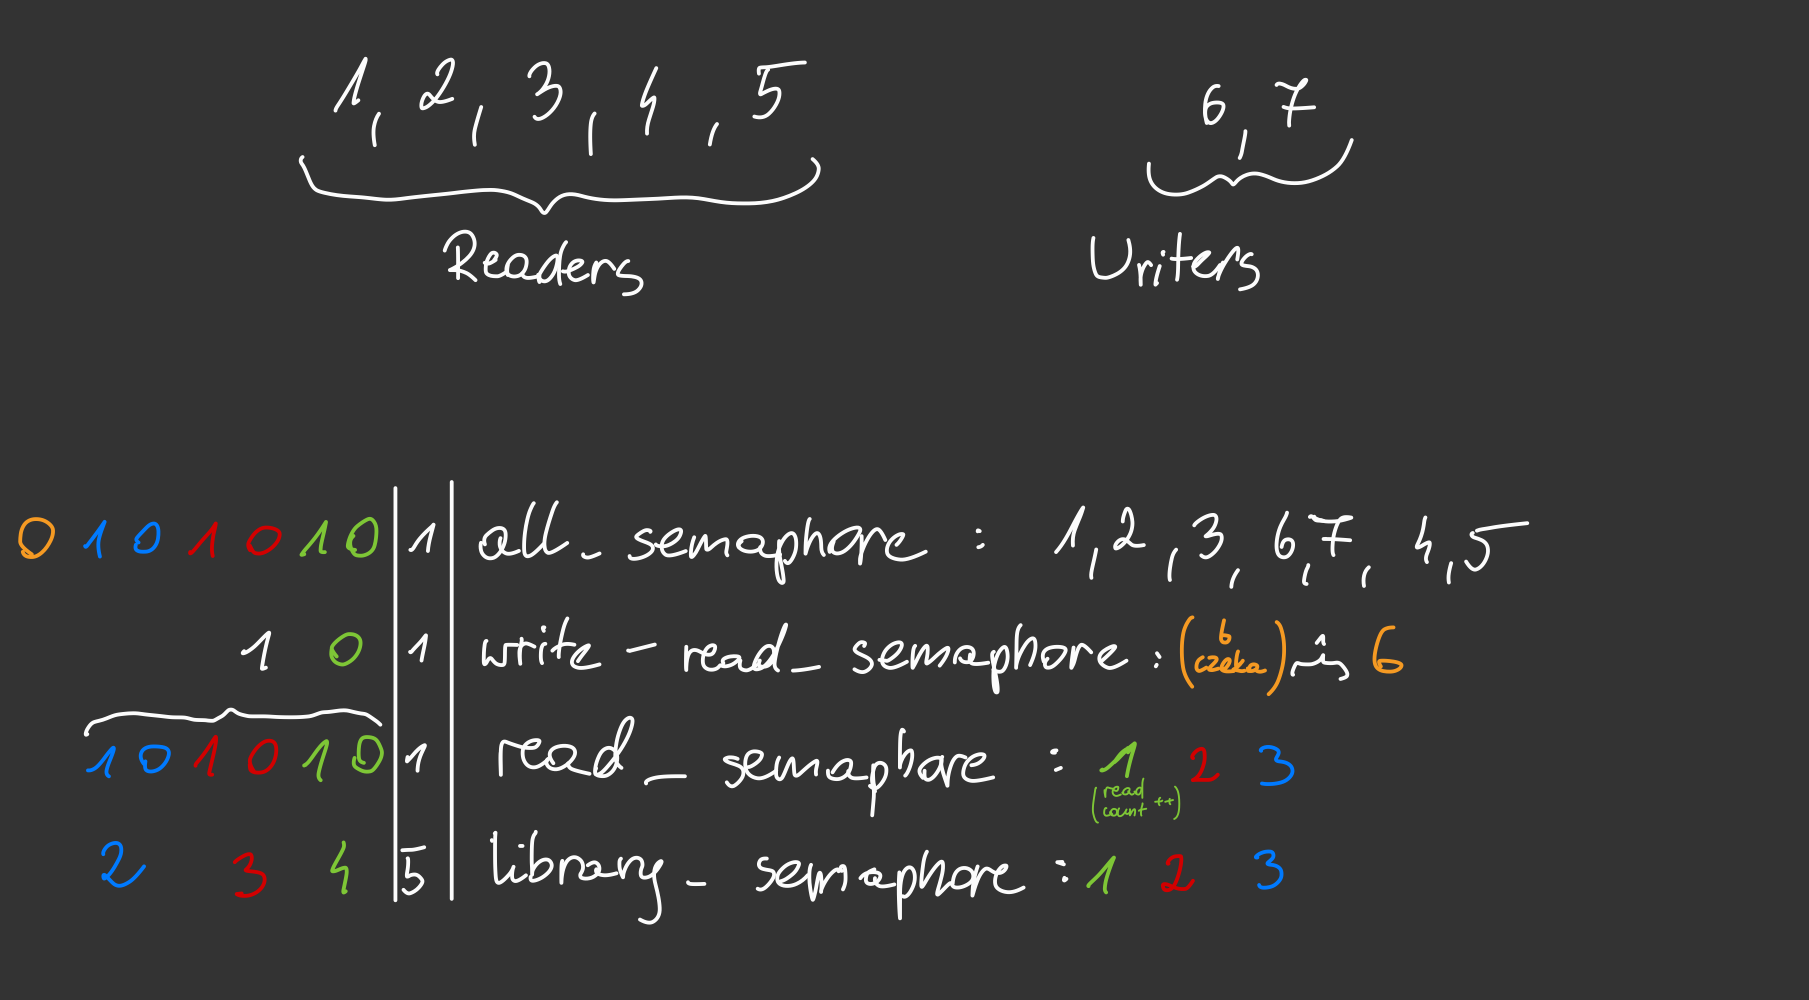 1, 2, 3, 4, 5
6, 7
Readers
Writers
0 1 0 1 0 1 0 1 all_semaphore : 1, 2, 3, 6, 7, 4, 5
1 0 1 write-read_semaphore : (6 czeka) 6
1 0 1 0 1 0 1 read_semaphore : 1 2 3
(read count ++)
2 3 4 5 library_semaphore : 1 2 3